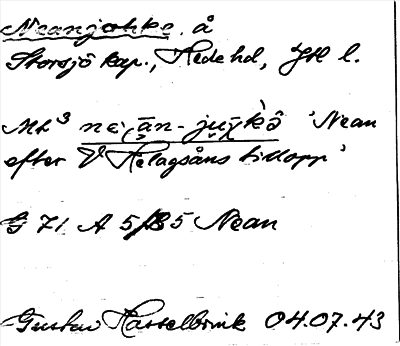 Neanjohke, å
Storsjö kap., Hede hd, Jtl l.
Mh³ 'Nean
efter V Helagsåns tillopp'
G 71 A 5/B5 Nean
Gustav Hasselbrink 04.07.43